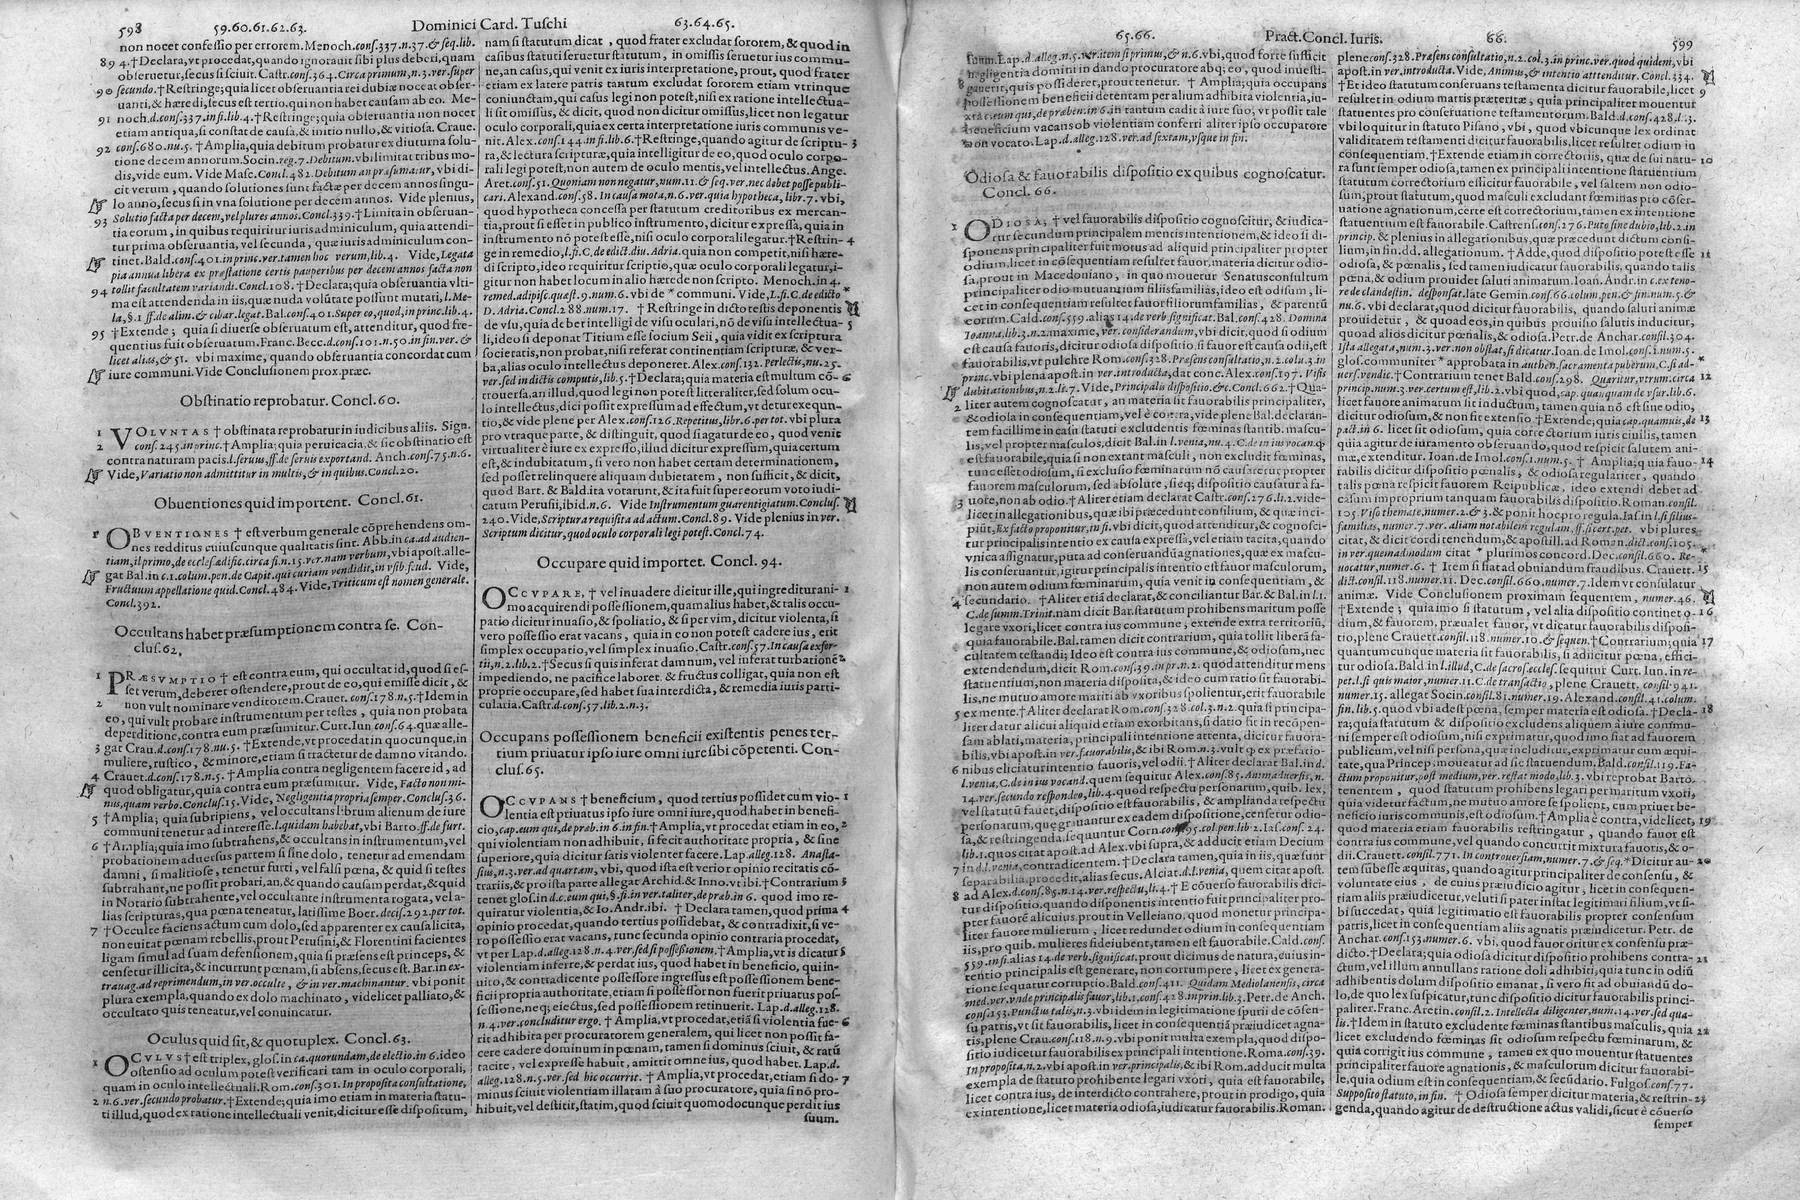 598 59.60.61.62.63. Dominici Card. Tuschi 63.64.65.
non nocet confessio per errorem. Menoch. conf. 337. n. 37. & seq. lib.
89 4. † Declara, vt procedat, quando ignorauit sibi plus deberi, quam
obseruetur, secus si sciuit. Castr. conf. 364. Circa primum, n. 3. ver. super
90 secundo. † Restringe; quia licet obseruantia rei dubiæ noceat obser-
uanti, & hæredi, secus est tertio. qui non habet causam ab eo. Me-
91 noch. d. conf. 337. in fi. lib. 4. † Restringe; quia obseruantia non nocet
etiam antiqua, si constat de causa, & initio nullo, & vitiosa. Craue.
92 conf. 680. nu. 5. † Amplia, quia debitum probatur ex diuturna solu-
tione decem annorum. Socin. reg. 7. Debitum. vbi limitat tribus mo-
dis, vide eum. Vide Masc. Concl. 482. Debitum an præsumatur, vbi di-
cit verum, quando solutiones sunt factæ per decem annos singu-
lo anno, secus si in vna solutione per decem annos. Vide plenius,
Solutio facta per decem, vel plures annos. Concl. 339. † Limita in obseruan-
93 tia eorum, in quibus requiritur iuris adminiculum, quia attendi-
tur prima obseruantia, vel secunda, quæ iuris adminiculum con-
tinet. Bald. conf. 401. in princ. ver. tamen hoc verum, lib. 4. Vide, Legata
pia annua libera ex præstatione certis pauperibus per decem annos facta non
94 tollit facultatem variandi. Concl. 108. † Declara; quia obseruantia vlti-
ma est attendenda in iis, quæ nuda volūtate possunt mutati, l. Me-
la, §. 1. ff. de alim. & cibar. legat. Bal. conf. 401. Super eo, quod, in princ. lib. 4.
95 † Extende; quia si diuerse obseruatum est, attenditur, quod fre-
quentius fuit obseruatum. Franc. Becc. d. conf. 101. n. 50. in fin. ver. &
licet alias, & 51. vbi maxime, quando obseruantia concordat cum
iure communi. Vide Conclusionem prox. præc.
Obstinatio reprobatur. Concl. 60.
1 VOLVNTAS † obstinata reprobatur in iudicibus aliis. Sign.
2 conf. 245. in princ. † Amplia; quia peruicacia, & sic obstinatio est
contra naturam pacis. l. seruus, ff. de seruis exportand. Anch. conf. 75. n. 6.
Vide, Variatio non admittitur in multis, & in quibus. Concl. 20.
Obuentiones quid importent. Concl. 61.
1 OBVENTIONES † est verbum generale cōprehendens om-
nes redditus cuiuscunque qualitatis sint. Abb. in ca. ad audien-
tiam, il primo, de eccles. ædific. circa fi. n. 15. ver. nam verbum, vbi apost. alle-
gat Bal. in c. 1. colum. pen. de Capit. qui curiam vendidit, in vsib. feud. Vide,
Fructuum appellatione quid. Concl. 484. Vide, Triticum est nomen generale.
Concl. 392.
Occultans habet præsumptionem contra se. Con-
clus. 62.
1 PRÆSVMPTIO † est contra eum, qui occultat id, quod si es-
set verum, deberet ostendere, prout de eo, qui emisse dicit, &
2 non vult nominare venditorem. Crauet. conf. 178. n. 5. † Idem in
eo, qui vult probare instrumentum per testes, quia non probata
deperditione, contra eum præsumitur. Curt. Iun. conf. 64. quæ alle-
3 gat Crau. d. conf. 178. nu. 5. † Extende, vt procedat in quocunque, in
muliere, rustico, & minore, etiam si tractetur de damno vitando.
4 Crauet. d. conf. 178. n. 5. † Amplia contra negligentem facere id, ad
quod obligatur, quia contra eum præsumitur. Vide, Facto non mi-
nus, quam verbo. Conclus. 15. Vide, Negligentia propria semper. Conclus. 36.
5 † Amplia; quia subripiens, vel occultans librum alienum de iure
communi tenetur ad interesse. l. quidam habebat, vbi Barto. ff. de furt.
6 † Amplia; quia imo subtrahens, & occultans instrumentum, vel
probationem aduersus partem si sine dolo, tenetur ad emendam
damni, si malitiose, tenetur furti, vel falsi pœna, & quid si testes
subtrahant, ne possit probari, an, & quando causam perdat, & quid
in Notario subtrahente, vel occultante instrumenta rogata, vel a-
lias scripturas, qua pœna teneatur, latissime Boer. decis. 292. per tot.
7 † Occulte faciens actum cum dolo, sed apparenter ex causa licita,
non euitat pœnam rebellis, prout Perusini, & Florentini facientes
ligam simul ad suam defensionem, quia si præsens est princeps, &
censetur illicita, & incurrunt pœnam, si absens, secus est. Bar. in ex-
trauag. ad reprimendum, in ver. occulte, & in ver. machinantur. vbi ponit
plura exempla, quando ex dolo machinato, videlicet palliato, &
occultato quis teneatur, vel conuincatur.
Oculus quid sit, & quotuplex. Concl. 63.
1 OCVLVS † est triplex, glos. in ca. quorundam, de electio. in 6. ideo
ostensio ad oculum potest verificari tam in oculo corporali,
quam in oculo intellectuali. Rom. conf. 301. In proposita consultatione,
2 n. 6. ver. secundo probatur. † Extende; quia imo etiam in materia statu-
ti illud, quod ex ratione intellectuali venit, dicitur esse dispositum,
nam si statutum dicat, quod frater excludat sororem, & quod in
casibus statuti seruetur statutum, in omissis seruetur ius commu-
ne, an casus, qui venit ex iuris interpretatione, prout, quod frater
etiam ex latere patris tantum excludat sororem etiam vtrinque
coniunctam, qui casus legi non potest, nisi ex ratione intellectua-
li sit omissus, & dicit, quod non dicitur omissus, licet non legatur
oculo corporali, quia ex certa interpretatione iuris communis ve-
nit. Alex. conf. 144. in fi. lib. 6. † Restringe, quando agitur de scriptu- 3
ra, & lectura scripturæ, quia intelligitur de eo, quod oculo corpo-
rali legi potest, non autem de oculo mentis, vel intellectus. Ange.
Aret. conf. 51. Quoniam non negatur, num. 11. & seq. ver. nec dabet posse publi-
cari. Alexand. conf. 58. In causa mota, n. 6. ver. quia hypotheca, libr. 7. vbi,
quod hypotheca concessa per statutum creditoribus ex mercan-
tia, prout si esset in publico instrumento, dicitur expressa, quia in
instrumento nō potest esse, nisi oculo corporali legatur. † Restrin- 4
ge in remedio, l. fi. C. de edict. diu. Adria. quia non competit, nisi hære-
di scripto, ideo requiritur scriptio, quæ oculo corporali legatur, i-
gitur non habet locum in alio hærede non scripto. Menoch. in 4.
remed. adipisc. quæst. 9. num. 6. vbi de * communi. Vide, L. fi. C. de edicto
D. Adria. Concl. 288. num. 17. † Restringe in dicto testis deponentis
de visu, quia debet intelligi de visu oculari, nō de visu intellectua- 5
li, ideo si deponat Titium esse socium Seii, quia vidit ex scriptura
societatis, non probat, nisi referat continentiam scripturæ, & ver-
ba, alias oculo intellectus deponeret. Alex. conf. 132. Perlectis, nu. 25.
ver. sed in dictis computis, lib. 5. † Declara; quia materia est multum cō- 6
trouersa, an illud, quod legi non potest litteraliter, sed solum ocu-
lo intellectus, dici possit expressum ad effectum, vt detur exequu-
tio, & vide plene per Alex. conf. 126. Repetitus, libr. 6. per tot. vbi plura
pro vtraque parte, & distinguit, quod si agatur de eo, quod venit
virtualiter è iure ex expresso, illud dicitur expressum, quia certum
est, & indubitatum, si vero non habet certam determinationem,
sed posset relinquere aliquam dubietatem, non sufficit, & dicit,
quod Bart. & Bald. ita votarunt, & ita fuit super eorum voto iudi-
catum Perusii, ibid. n. 6. Vide Instrumentum guarentigiatum. Conclus.
240. Vide, Scriptura requisita ad actum. Concl. 89. Vide plenius in ver.
Scriptum dicitur, quod oculo corporali legi potest. Concl. 74.
Occupare quid importet. Concl. 94.
OCCVPARE, † vel inuadere dicitur ille, qui ingreditur ani- 1
mo acquirendi possessionem, quam alius habet, & talis occu-
patio dicitur inuasio, & spoliatio, & si per vim, dicitur violenta, si
vero possessio erat vacans, quia in eo non potest cadere ius, erit
simplex occupatio, vel simplex inuasio. Castr. conf. 57. In causa exfor-
tii, n. 2. lib. 2. † Secus si quis inferat damnum, vel inferat turbationē 2
impediendo, ne pacifice laboret. & fructus colligat, quia non est
proprie occupare, sed habet sua interdicta, & remedia iuris parti-
cularia. Castr. d. conf. 57. lib. 2. n. 3.
Occupans possessionem beneficii existentis penes ter-
tium priuatur ipso iure omni iure sibi cōpetenti. Con-
clus. 65.
OCCVPANS † beneficium, quod tertius possidet cum vio- 1
lentia est priuatus ipso iure omni iure, quod habet in benefi-
cio, cap. eum qui, de præb. in 6. in fin. † Amplia, vt procedat etiam in eo, 2
qui violentiam non adhibuit, si fecit authoritate propria, & sine
superiore, quia dicitur satis violenter facere. Lap. alleg. 128. Anasta-
sius, n. 3. ver. ad quartam, vbi, quod ista est verior opinio recitatis cō-
trariis, & pro ista parte allegat Archid. & Inno. vt ibi. † Contrarium 3
tenet glos. in d. c. eum qui, §. si. in ver. taliter, de præb. in 6. quod imo re-
quiratur violentia, & Io. Andr. ibi. † Declara tamen, quod prima 4
opinio procedat, quando tertius possidebat, & contradixit, si ve-
ro possessio erat vacans, tunc secunda opinio contraria procedat,
vt per Lap. d. alleg. 128. n. 4. ver. sed si possessionem. † Amplia, vt is dicatur 5
violentiam inferre, & perdat ius, quod habet in beneficio, qui in-
uito, & contradicente possessore ingressus est possessionem bene-
ficii propria authoritate, etiam si possessor non fuerit priuatus pos-
sessione, neq; eiectus, sed possessionem retinuerit. Lap. d. alleg. 128.
n. 4. ver. concluditur ergo. † Amplia, vt procedat, etiā si violentia fue- 6
rit adhibita per procuratorem generalem, qui licet non possit fa-
cere cadere dominum in pœnam, tamen si dominus sciuit, & ratū
tacite, vel expresse habuit, amittit omne ius, quod habet. Lap. d.
alleg. 128. n. 5. ver. sed hic occurrit. † Amplia, vt procedat, etiam si do- 7
minus sciuit violentiam illatam à suo procuratore, quia si nō pro-
hibuit, vel destitit, statim, quod sciuit quomodocunque perdit ius
suum.
65.66. Pract. Concl. Iuris. 66. 599
suum. Lap. d. alleg. n. 5. ver. item si primus, & n. 6. vbi, quod forte sufficit
negligentia domini in dando procuratore absq; eo, quod inuesti-
8 gauerit, quis possideret, prout tenetur. † Amplia; quia occupans
possessionem beneficii detentam per alium adhibita violentia, iu-
xta c. eum qui, de præben. in 6. in tantum cadit à iure suo; vt possit tale
beneficium vacans ob violentiam conferri aliter ipso occupatore
non vocato. Lap. d. alleg. 128. ver. ad sextam, vsque in fin.
Odiosa & fauorabilis dispositio ex quibus cognoscatur.
Concl. 66.
1 ODIOSA, † vel fauorabilis dispositio cognoscitur, & iudica-
tur secundum principalem mentis intentionem, & ideo si di-
sponens principaliter fuit motus ad aliquid principaliter propter
odium, licet in cōsequentiam resultet fauor, materia dicitur odio-
sa, prout in Macedoniano, in quo mouetur Senatusconsultum
principaliter odio mutuantium filiisfamilias, ideo est odiosum, li-
cet in consequentiam resultet fauor filiorumfamilias, & parentū
eorum. Cald. conf. 559. alias 14. de verb. significat. Bal. conf. 428. Domina
Ioanna, lib. 3. n. 2. maxime, ver. considerandum, vbi dicit, quod si odium
est causa fauoris, dicitur odiosa dispositio, si fauor est causa odii, est
fauorabilis, vt pulchre Rom. conf. 328. Præsens consultatio, n. 2. colu. 3. in
princ. vbi plena apost. in ver. introducta, dat conc. Alex. conf. 197. Visis
dubitationibus, n. 2. li. 7. Vide, Principalis dispositio. &c. Concl. 662. † Qua-
2 liter autem cognoscatur, an materia sit fauorabilis principaliter,
& odiosa in consequentiam, vel è contra, vide plene Bal. declaran-
tem facillime in casu statuti excludentis fœminas stantibus mascu-
lis, vel propter masculos, dicit Bal. in l. venia, nu. 4. C. de in ius vocan. ꝙ
est fauorabile, quia si non extant masculi, non excludit fœminas,
tunc esset odiosum, si exclusio fœminarum nō causaretur propter
fauorem masculorum, sed absolute, sicq; dispositio causatur à fa-
3 uore, non ab odio. † Aliter etiam declarat Castr. conf. 276. li. 2. vide-
licet in allegationibus, quæ ibi præcedunt consilium, & quæ inci-
piūt, Ex facto proponitur, in fi. vbi dicit, quod attenditur, & cognosci-
tur principalis intentio ex causa expressa, vel etiam tacita, quando
vnica assignatur, puta ad conseruandū agnationes, quæ ex mascu-
lis conseruantur, igitur principalis intentio est fauor masculorum,
non autem odium fœminarum, quia venit in consequentiam, &
4 secundario. † Aliter etiā declarat, & conciliantur Bar. & Bal. in l. 1.
C. de summ. Trinit. nam dicit Bar. statutum prohibens maritum posse
legare vxori, licet contra ius commune, extende extra territoriū,
quia fauorabile. Bal. tamen dicit contrarium, quia tollit libera fa-
cultatem testandi; Ideo est contra ius commune, & odiosum, nec
extendendum, dicit Rom. conf. 39. in pr. n. 2. quod attenditur mens
statuentium, non materia disposita, & ideo cum ratio sit fauorabi-
lis, ne mutuo amore mariti ab vxoribus spolientur, erit fauorabile
5 ex mente. † Aliter declarat Rom. conf. 328. col. 3. n. 2. quia si principa-
liter datur alicui aliquid etiam exorbitans, si datio fit in recōpen-
sam ablati, materia, principali intentione attenta, dicitur fauora-
bilis, vbi apost. in ver. fauorabilis, & ibi Rom. n. 3. vult ꝙ ex præfatio-
6 nibus eliciatur intentio fauoris, vel odii. † Aliter declarat Bald. in
l. venia, C. de in ius vocand. quem sequitur Alex. conf. 85. Animaduersis, n.
14. ver. secundo respondeo, lib. 4. quod respectu personarum, quib. lex,
vel statutū fauet, dispositio est fauorabilis, & amplianda respectu
personarum, que grauantur ex eadem dispositione, censetur odio-
sa, & restringenda, sequuntur Corn. conf. 95. col. pen. lib. 2. Ias. conf. 24.
lib. 1. quos citat apost. ad Alex. vbi supra, & adducit etiam Decium
7 in d. l. venia, contradicentem. † Declara tamen, quia in iis, quæ sunt
separabilia procedit, alias secus. Alciat. d. l. venia, quem citat apost.
8 ad Alex. d. conf. 85. n. 14. ver. respectu, li. 4. † E cōuerso fauorabilis dici-
tur dispositio. quando disponentis intentio fuit principaliter pro-
pter fauorē alicuius prout in Velleiano. quod monetur principa-
liter fauore mulierum, licet redundet odium in consequentiam
iis, pro quib. mulieres fideiubent, tamen est fauorabile. Cald. conf.
559. in fi. alias 14. de verb. significat. prout dicimus de natura, cuius in-
tentio principalis est generare, non corrumpere, licet ex genera-
tione sequatur corruptio. Bald. conf. 411. Quidam Mediolanensis, circa
med. ver. vnde principalis fauor, lib. 1. conf. 428. in prin. lib. 3. Petr. de Anch.
conf. 153. Punctus talis, n. 3. vbi idem in legitimatione spurii de cōsen-
su patris, vt sit fauorabilis, licet in consequentiā præiudicet agna-
tis, plene Crau. conf. 118. n. 9. vbi ponit multa exempla, quod dispo-
sitio iudicetur fauorabilis ex principali intentione. Roma. conf. 39.
In proposito, n. 2. vbi apost. in ver. principalis, & ibi Rom. adducit multa
exempla de statuto prohibente legari vxori, quia est fauorabile,
licet contra ius, de interdicto contrahere, prout in prodigo, quia
ex intentione, licet materia odiosa, iudicatur fauorabilis. Roman.
plene conf. 328. Præsens consultatio, n. 2. col. 3. in princ. ver. quod quidem, vbi
apost. in ver. introducta. Vide, Animus, & intentio attenditur. Concl. 334.
† Et ideo statutum conseruans testamenta dicitur fauorabile, licet 9
resultet in odium matris præteritæ, quia principaliter mouentur
statuentes pro conseruatione testamentorum. Bald. d. conf. 428. l. 3.
vbi loquitur in statuto Pisano, vbi, quod vbicunque lex ordinat
validitatem testamenti dicitur fauorabilis, licet resultet odium in
consequentiam. † Extende etiam in correctoriis, quæ de sui natu- 10
ra sunt semper odiosa, tamen ex principali intentione statuentium
statutum correctorium efficitur fauorabile, vel saltem non odio-
sum, prout statutum, quod masculi excludant fœminas pro conser-
uatione agnationum, certe est correctorium, tamen ex intentione
statuentium est fauorabile. Castrens. conf. 276. Puto sine dubio, lib. 2. in
princip. & plenius in allegationibus, quæ præcedunt dictum consi-
lium, in fin. dd. allegationum. † Adde, quod dispositio potest esse 11
odiosa, & pœnalis, sed tamen iudicatur fauorabilis, quando talis
pœna, & odium prouidet saluti animatum. Ioan. Andr. in c. ex teno-
re de clandestin. desponsat. late Gemin. conf. 66. colum. pen. & fin. num. 5. &
nu. 6. vbi declarat, quod dicitur fauorabilis, quando saluti animæ
prouidetur, & quod eos, in quibus prouisio salutis inducitur,
quoad alios dicitur pœnalis, & odiosa. Petr. de Anchar. conf. 304.
Ista allegata, num. 3. ver. non obstat, si dicatur. Ioan. de Imol. conf. 1. num. 5.
glos. communiter * approbata in authen. sacramenta puberum, C. si ad-
uers. vendit. † Contrarium tenet Bald. conf. 298. Quæritur, vtrum. circa 12
princip. num. 3. ver. certum est, lib. 2. vbi quod, cap. quanquam de vsur. lib. 6.
licet fauore animarum sit inductum, tamen quia nō est sine odio,
dicitur odiosum, & non sit extensio † Extende; quia cap. quamuis, de 13
pact. in 6. licet sit odiosum, quia correctorium iuris ciuilis, tamen
quia agitur de iuramento obseruando, quod respicit salutem ani-
mæ, extenditur. Ioan. de Imol. conf. 1. num. 5. † Amplia; quia fauo- 14
rabilis dicitur dispositio pœnalis, & odiosa regulariter, quando
talis pœna respicit fauorem Reipublicæ, ideo extendi debet ad
casum improprium tanquam fauorabilis dispositio. Roman. consil.
105. Viso themate, numer. 2. & 3. & ponit hoc pro regula. Ias. in l. si filius-
familias, numer. 7. ver. aliam notabilem regulam, ff. si cert. pet. vbi plures
citat, & dicit cordi tenendum, & apostill. ad Roman. dict. conf. 105.
in ver. quemadmodum citat * plurimos concord. Dec. consil. 660. Re-
uocatur, numer. 6. † Item si fiat ad obuiandum fraudibus. Crauett. 15
dict. consil. 118. numer. 11. Dec. consil. 660. numer. 7. Idem vt consulatur
animæ. Vide Conclusionem proximam sequentem, numer. 46.
† Extende; quia imo si statutum, vel alia dispositio contineat o- 16
dium, & fauorem, præualet fauor, vt dicatur fauorabilis disposi-
tio, plene Crauett. consil. 118. numer. 10. & sequen. † Contrarium; quia 17
quantumcunque materia sit fauorabilis, si adiicitur pœna, effici-
tur odiosa. Bald. in l. illud, C. de sacros. eccles. sequitur Curt. Iun. in re-
pet. l. si quis maior, numer. 11. C. de transactio., plene Crauett. consil. 941.
numer. 15. allegat Socin. consil. 81. numer. 19. Alexand. consil. 41. colum.
fin. lib. 5. quod vbi adest pœna, semper materia est odiosa. † Decla- 18
ra; quia statutum & dispositio excludens aliquem à iure commu-
ni semper est odiosum, nisi exprimatur, quod imo fiat ad fauorem
publicum, vel nisi persona, quæ includitur, exprimatur cum æqui-
tate, qua Princeps moueatur ad casum exceptum. Bald. consil. 119. Fa-
ctum proponitur, post medium, ver. restat modo, lib. 3. vbi reprobat Barto.
tenentem, quod statutum prohibens legari per maritum vxori,
quia videtur factum, ne mutuo amore se spolient, cum priuet be-
neficio iuris communis, est odiosum. † Amplia è contra, videlicet, 19
quod materia etiam fauorabilis restringatur, quando fauor est
contra ius commune, vel quando concurrit mixtura fauoris, & o-
dii. Crauett. consil. 771. In controuersiam, numer. 7. & seq. * Dicitur au- 20
tem subesse æquitas, quando agitur principaliter de consensu, &
voluntate eius, de cuius præiudicio agitur, licet in consequen-
tiam aliis præiudicetur, veluti si pater instat legitimari filium, vt si-
bi succedat, quia legitimatio est fauorabilis propter consensum
patris, licet in consequentiam aliis agnatis præiudicetur. Petr. de
Anchar. conf. 153. numer. 6. vbi, quod fauor oritur ex consensu præ-
dicto. † Declara; quia odiosa dicitur dispositio prohibens contra- 21
ctum, vel illum annullans ratione doli adhibiti, quia tunc in odiū
adhibentis dolum dispositio emanat, si vero sit ad obuiandū do-
lo, de quo lex suspicatur, tunc dispositio dicitur fauorabilis princi-
paliter. Franc. Aretin. consil. 2. Intellecta diligenter, num. 14. ver. sed qua-
lis. † Idem in statuto excludente fœminas stantibus masculis, quia 22
licet excludendo fœminas sit odiosum respectu fœminarum, &
quia corrigit ius commune, tamen ex quo mouentur statuentes
principaliter fauore agnationis, & masculorum dicitur fauorabi-
le, quia odium est in consequentiam, & secūdatio. Fulgos. conf. 77.
Supposito statuto, in fin. † Odiosa semper dicitur materia, & restrin- 23
genda, quando agitur de destructione actus validi, sicut è cōuerso
semper